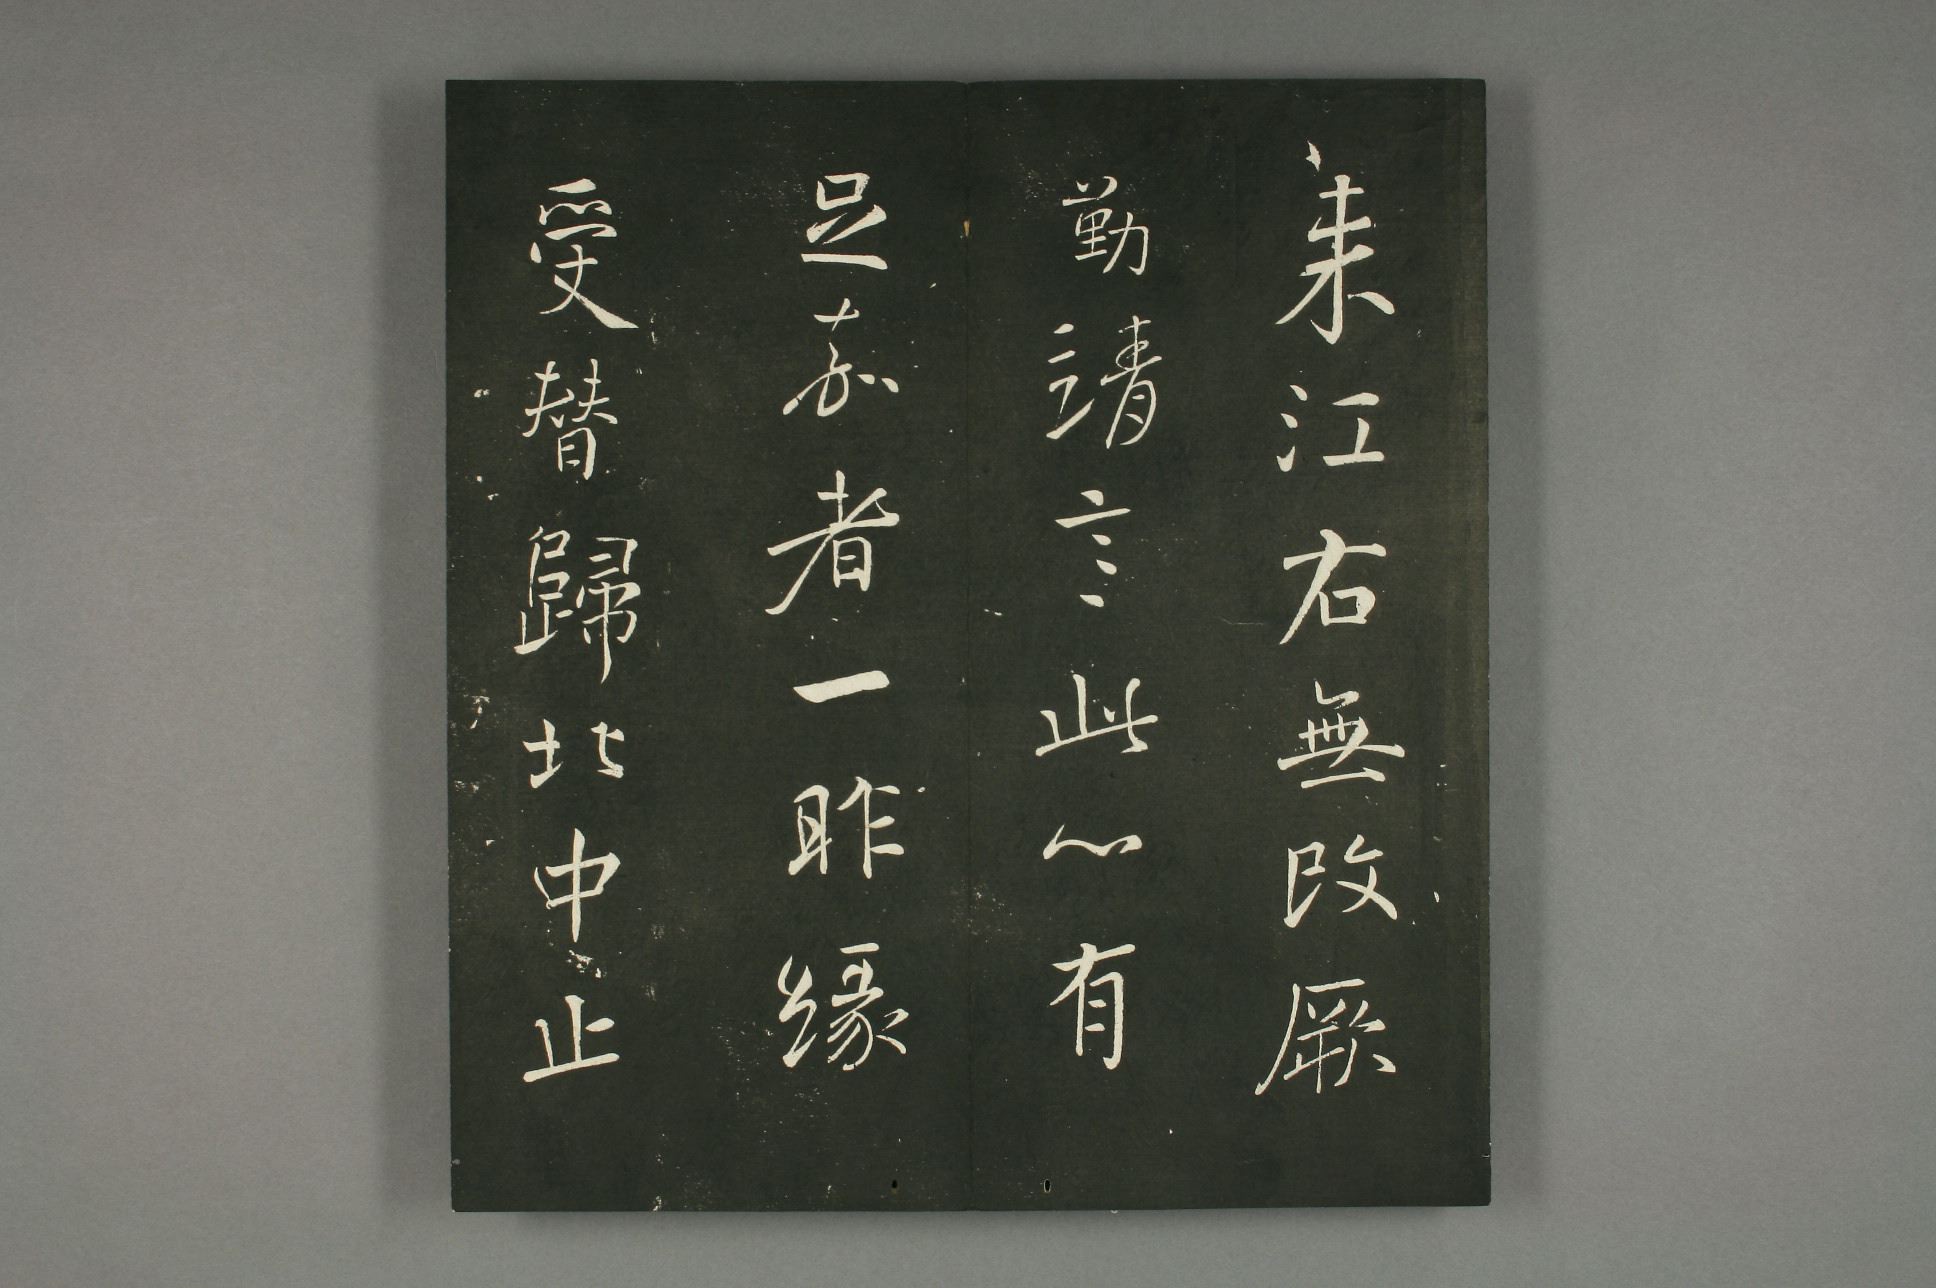 来江右無改厥
勤請言此心有
足嘉者一昨緣
受替歸北中止